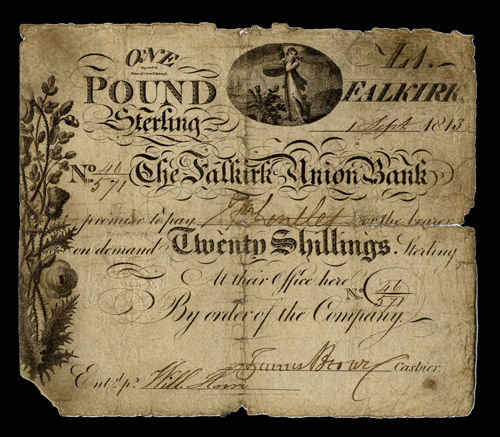 ONE
POUND
Sterling
£1.
FALKIRK,
1 Sept. 1813
No. 46/571 The Falkirk Union Bank
promise to pay or the bearer
on demand Twenty Shillings. Sterling
At their Office here No. 46/571
By order of the Company.
James Brown Cashier.
Ent.d p.r Will